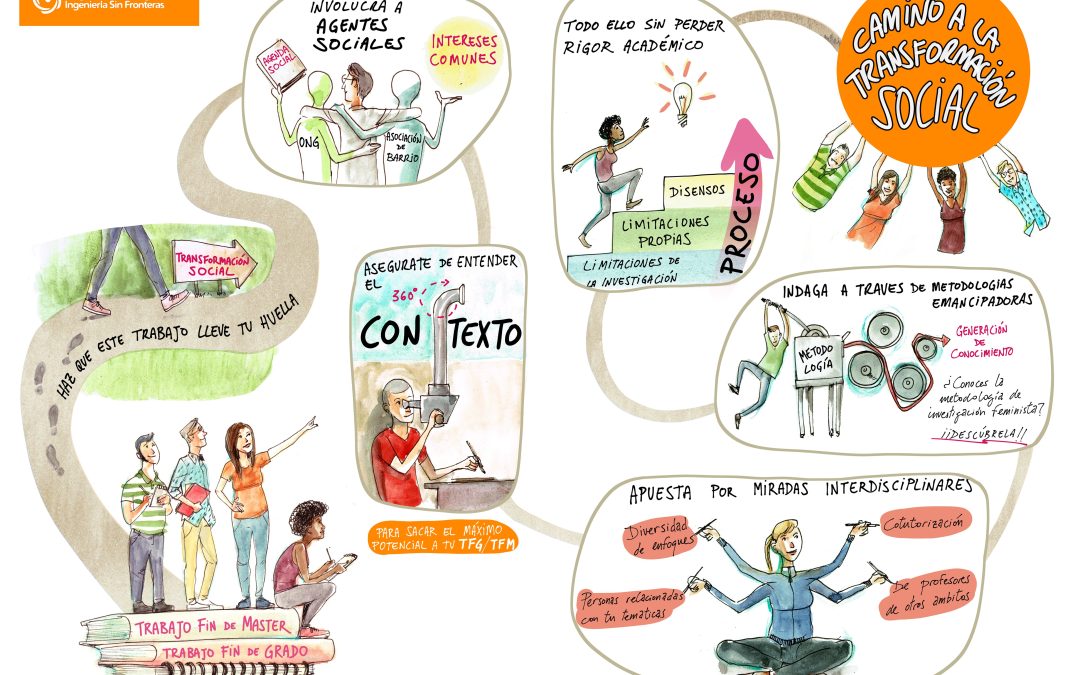 Ingeniería Sin Fronteras
INVOLUCRA A
AGENTES
SOCIALES
AGENDA
SOCIAL
INTERESES
COMUNES
ONG
ASOCIACIÓN
DE
BARRIO
TODO ELLO SIN PERDER
RIGOR ACADÉMICO
DISENSOS
LIMITACIONES
PROPIAS
LIMITACIONES DE
LA INVESTIGACIÓN
PROCESO
CAMINO A LA
TRANSFORMACIÓN
SOCIAL
TRANSFORMACIÓN
SOCIAL
HAZ QUE ESTE TRABAJO LLEVE TU HUELLA
ASEGURATE DE ENTENDER
EL
360º
CONTEXTO
INDAGA A TRAVES DE METODOLOGIAS
EMANCIPADORAS
METODO
LOGÍA
GENERACIÓN
DE
CONOCIMIENTO
¿Conoces la
metodología de
investigación feminista?
¡¡DESCÚBRELA!!
PARA SACAR EL MÁXIMO
POTENCIAL A TU TFG/TFM
APUESTA POR MIRADAS INTERDISCIPLINARES
Diversidad
de enfoques
Cotutorización
Personas relacionadas
con tu temáticas
De profesores
de otros ambitos
TRABAJO FIN DE MASTER
TRABAJO FIN DE GRADO